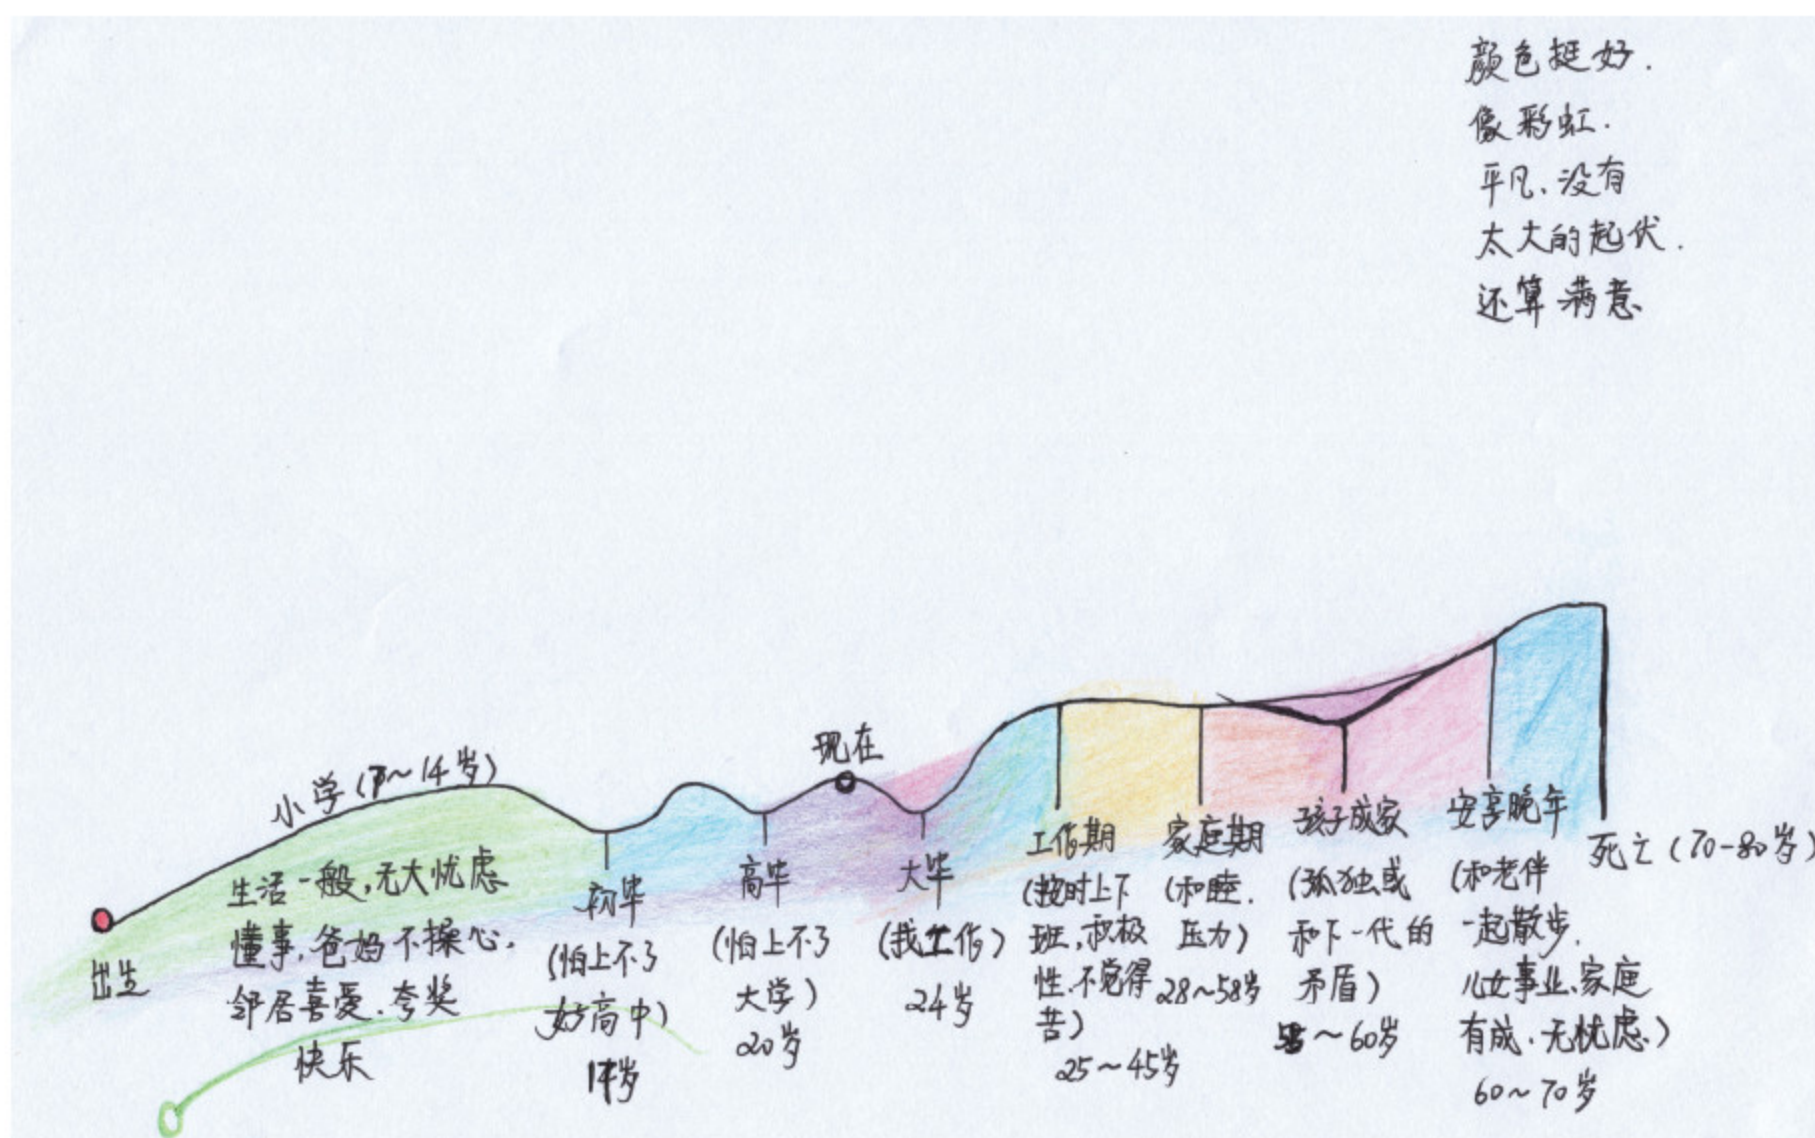 颜色挺好.
像彩虹.
平凡、没有
太大的起伏.
还算满意.
现在
小学(7~14岁)
出生
生活一般,无大忧虑
懂事,爸妈不操心,
邻居喜爱、夸奖
快乐
初毕
(怕上不了
好高中)
17岁
高毕
(怕上不了
大学)
20岁
大毕
(找工作)
24岁
工作期
(按时上下
班,积极
性、不觉得
苦)
25~45岁
家庭期
(和睦.
压力)
28~58岁
孩子成家
(孤独或
和下一代的
矛盾)
~60岁
安享晚年
(和老伴
一起散步,
儿女事业、家庭
有成、无忧虑.)
60~70岁
死亡(70-80岁)